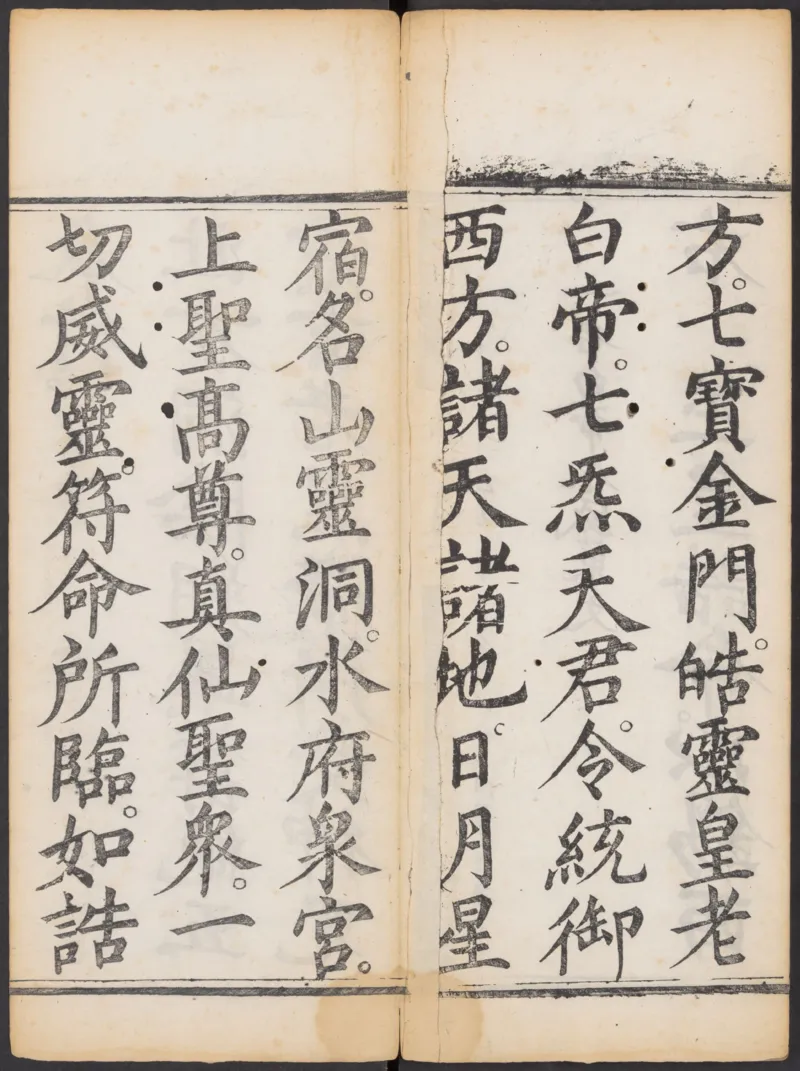 方。七寶金門。皓靈皇老
白帝。七炁天君。令統御
西方。諸天諸地。日月星
宿。名山靈洞。水府泉宮。
上聖高尊。真仙聖衆。一
切威靈。符命所臨。如誥